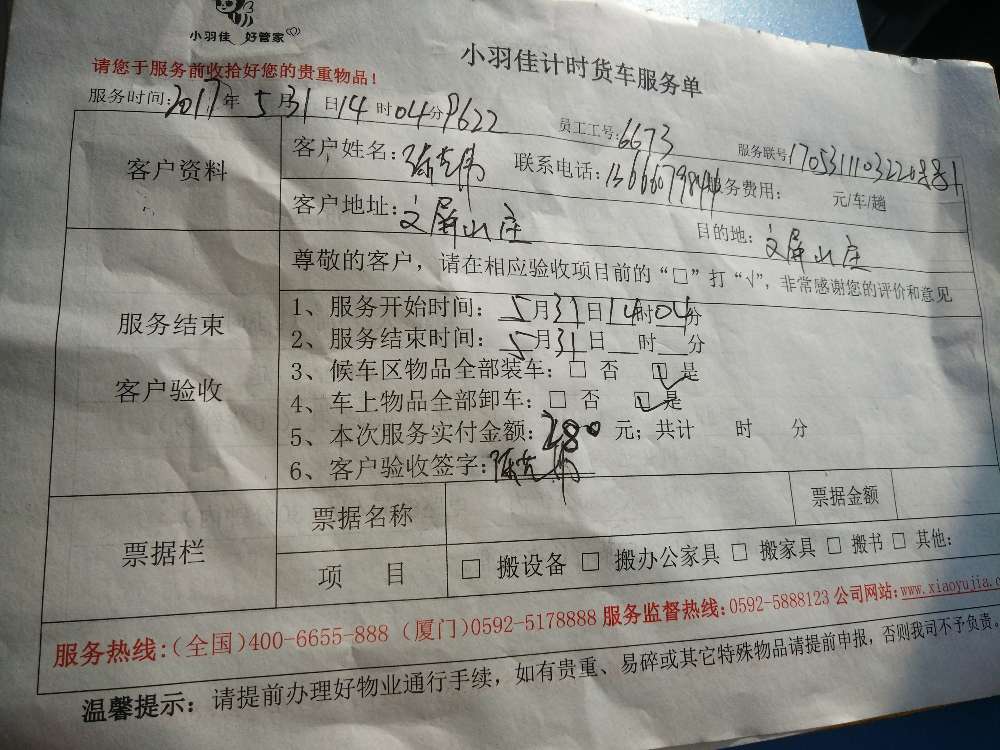 小羽佳 好管家
小羽佳计时货车服务单
请您于服务前收拾好您的贵重物品!
服务时间:2017年5月31日14时04分P622 员工工号:6673 服务联号
客户资料
客户姓名: 联系电话: 务费用: 元/车/趟
客户地址:文屏山庄 目的地:文屏山庄
服务结束
客户验收
尊敬的客户，请在相应验收项目前的“□”打“√”，非常感谢您的评价和意见
1、服务开始时间:5月31日14时04分
2、服务结束时间:5月31日__时__分
3、候车区物品全部装车:□ 否 ☑ 是
4、车上物品全部卸车:□ 否 ☑ 是
5、本次服务实付金额:280元;共计 时 分
6、客户验收签字:
票据栏
票据名称 票据金额
项 目 □ 搬设备 □ 搬办公家具 □ 搬家具 □ 搬书 □ 其他:
服务热线:(全国)400-6655-888 (厦门)0592-5178888 服务监督热线:0592-5888123 公司网站:www.xiaoyujia.c
温馨提示: 请提前办理好物业通行手续，如有贵重、易碎或其它特殊物品请提前申报，否则我司不予负责。